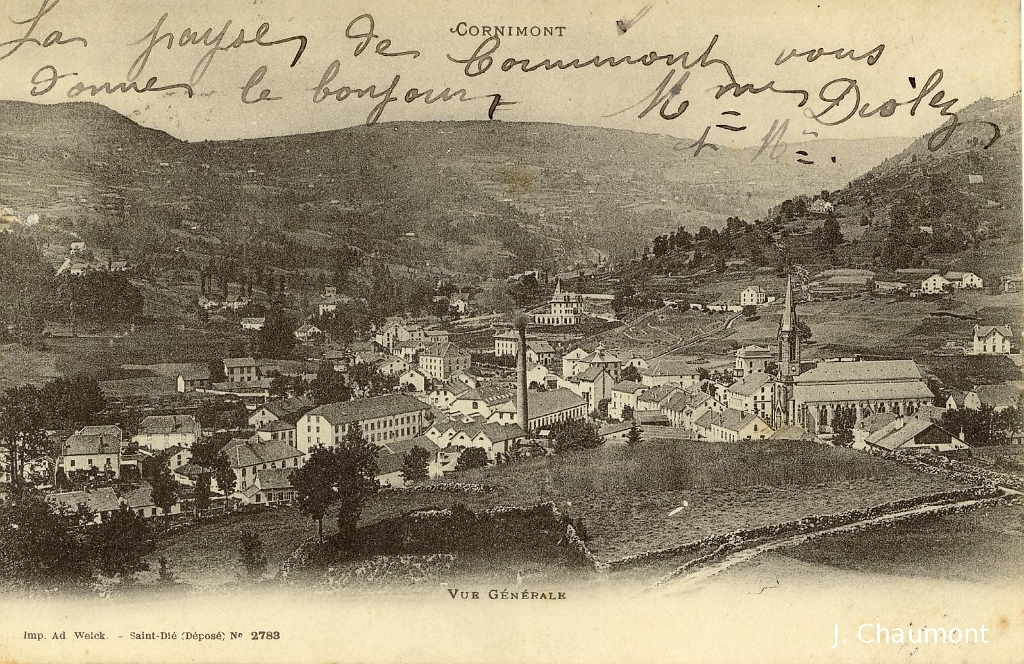 CORNIMONT
La payse de Cornimont vous
donne le bonjour Mme
VUE GÉNÉRALE
Imp. Ad Weick. - Saint-Dié (Déposé) No 2783
J. Chaumont